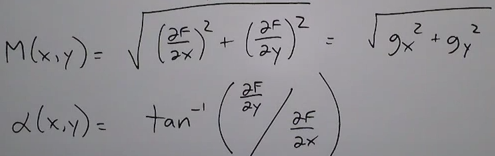 M(x,y) = √((∂F/∂x)² + (∂F/∂y)²) = √(gx² + gy²)
α(x,y) = tan⁻¹(∂F/∂y / ∂F/∂x)